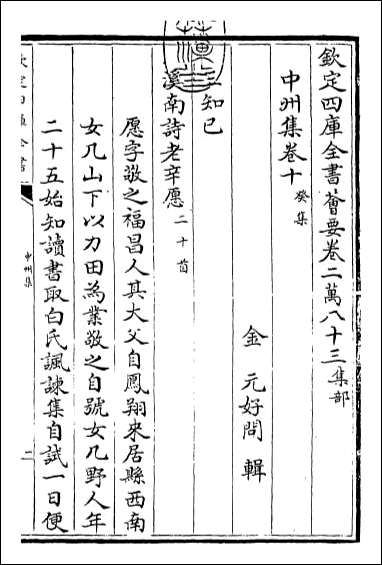 欽定四庫全書薈要卷二萬八十三集部
中州集卷十 癸集
金 元好問 輯
三知己
溪南詩老辛愿 二十首
愿字敬之福昌人其大父自鳳翔來居縣西南
女几山下以力田為業敬之自號女几野人年
二十五始知讀書取白氏諷諫集自試一日便
中州集